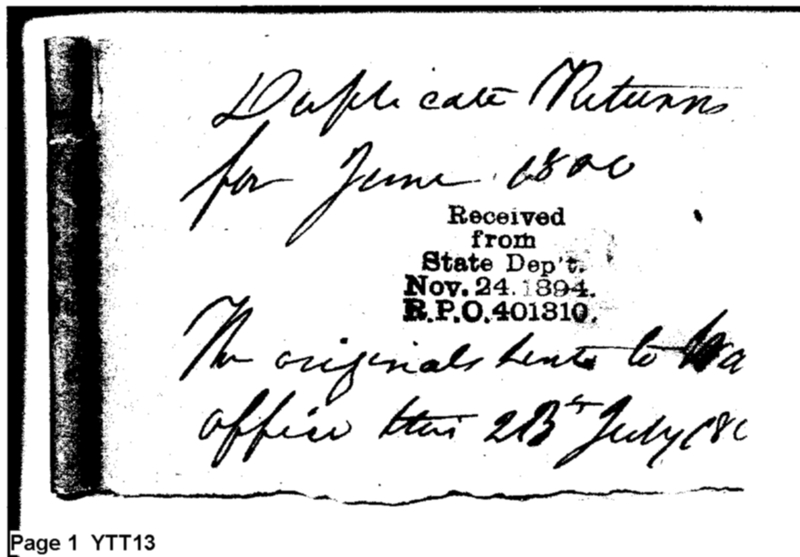 Duplicate Returns
for June 1800
Received
from
State Dep't.
Nov. 24. 1894.
R.P.O. 401310.
The originals sent to Wa
office this 23th July 180
Page 1 YTT13